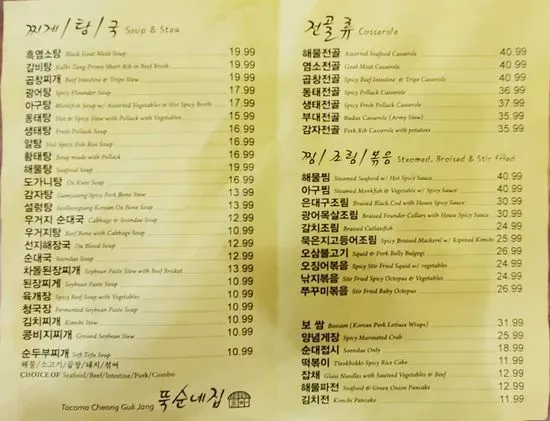 찌게/탕/국 Soup & Stew
흑염소탕 Black Goat Meat Soup 19.99
갈비탕 Kalbi Tang-Prime Short Rib in Beef Broth 19.99
곱창찌개 Beef Intestine & Tripe Stew 19.99
광어탕 Spicy Flounder Soup 17.99
아구탕 Monkfish Soup w/ Assorted Vegetables in Hot Spicy Broth 17.99
동태탕 Hot & Spicy Stew with Pollack with Vegetables 15.99
생태탕 Fresh Pollack Soup 16.99
알탕 Hot Spicy Fish Roe Soup 16.99
황태탕 Soup made with Pollack 16.99
해물탕 Seafood Soup 19.99
도가니탕 Ox Knee Soup 16.99
감자탕 Gamjatang-Spicy Pork Bone Stew 13.99
설렁탕 Seolleongtang Korean Ox Bone Soup 13.99
우거지 순대국 Cabbage & Soondae Soup 12.99
우거지탕 Beef Bone with Cabbage Soup 10.99
선지해장국 Ox Blood Soup 12.99
순대국 Soondae Soup 12.99
차돌된장찌개 Soybean Paste Stew with Beef Brisket 13.99
된장찌게 Soybean Paste Soup 10.99
육개장 Spicy Beef Soup with Vegetables 10.99
청국장 Fermented Soybean Paste Soup 10.99
김치찌개 Kimchi Stew 10.99
콩비지찌개 Ground Soybean Stew 10.99
순두부찌개 Soft Tofu Soup 10.99
해물/소고기/곱창/돼지/섞어
CHOICE OF Seafood/Beef/Intestine/Pork/Combo
Tacoma Cheong Guk Jang 뚝순네집
전골류 Casserole
해물전골 Assorted Seafood Casserole 40.99
염소전골 Goat Meat Casserole 40.99
곱창전골 Spicy Beef Intestine & Tripe Casserole 40.99
동태전골 Spicy Pollack Casserole 36.99
생태전골 Spicy Fresh Pollack Casserole 37.99
부대전골 Budae Casserole (Army Stew) 35.99
감자전골 Pork Rib Casserole with potatoes 35.99
찜/조림/볶음 Steamed, Braised & Stir Fried
해물찜 Steamed Seafood w/ Hot Spicy Sauce 40.99
아구찜 Steamed Monkfish & Vegetable w/ Spicy Sauce 40.99
은대구조림 Braised Black Cod with House Spicy Sauce 30.99
광어목살조림 Braised Founder Collars with House Spicy Sauce 30.99
갈치조림 Braised Cutlassfish 24.99
묵은지고등어조림 Spicy Braised Mackerel w/ Ripened Kimchi 25.99
오삼불고기 Squid & Pork Belly Bulgogi 26.99
오징어볶음 Spicy Stir Fried Squid w/ vegetables 24.99
낙지볶음 Spicy Stir Fried Octopus w/ Vegetable 26.99
쭈꾸미볶음 Stir Fried Baby Octopus 26.99
보 쌈 Bossam (Korean Pork Lettuce Wraps) 31.99
양념게장 Spicy Marinated Crab 25.99
순대접시 Soondae Only 18.99
떡볶이 Tteokbokki Spicy Rice Cake 11.99
잡채 Glass Noodles with Sauteed Vegetables & Beef 12.99
해물파전 Seafood & Green Onion Pancake 12.99
김치전 Kimchi Pancake 11.99